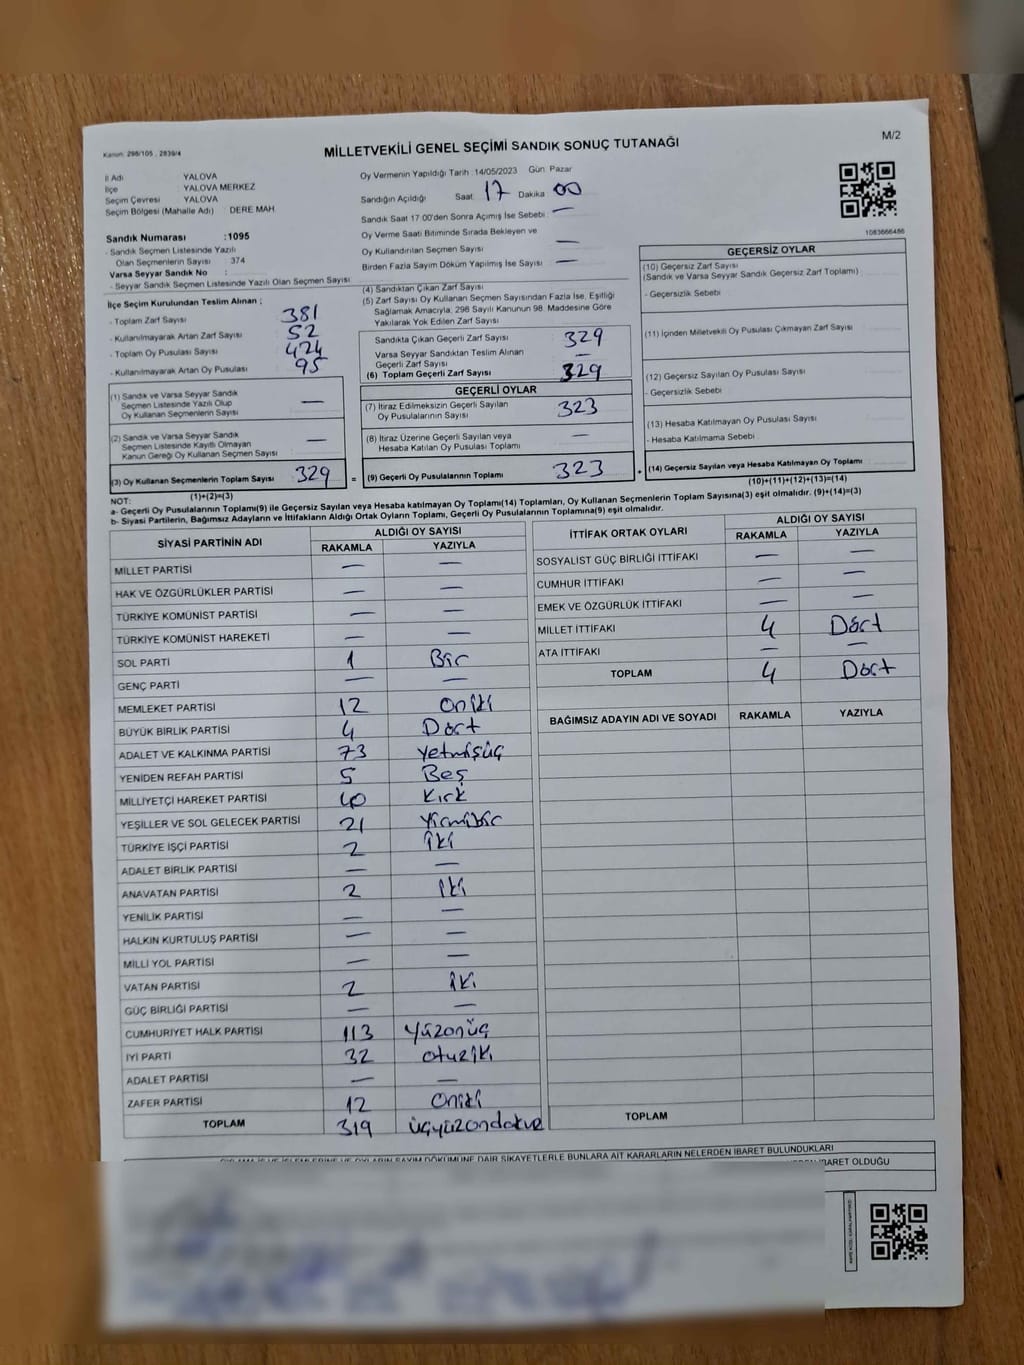 M/2
Kanun: 298/105 , 2839/4
MİLLETVEKİLİ GENEL SEÇİMİ SANDIK SONUÇ TUTANAĞI
İl Adı YALOVA
İlçe : YALOVA MERKEZ
Seçim Çevresi YALOVA
Seçim Bölgesi (Mahalle Adı) DERE MAH.
Sandık Numarası :1095
- Sandık Seçmen Listesinde Yazılı
Olan Seçmenlerin Sayısı : 374
Varsa Seyyar Sandık No :
- Seyyar Sandık Seçmen Listesinde Yazılı Olan Seçmen Sayısı:
Oy Vermenin Yapıldığı Tarih : 14/05/2023 Gün: Pazar
Sandığın Açıldığı Saat: 17 Dakika 00
Sandık Saat 17:00'den Sonra Açılmış İse Sebebi : —
Oy Verme Saati Bitiminde Sırada Bekleyen ve
Oy Kullandırılan Seçmen Sayısı —
Birden Fazla Sayım Döküm Yapılmış İse Sayısı —
1083666486
İlçe Seçim Kurulundan Teslim Alınan ;
- Toplam Zarf Sayısı 381
- Kullanılmayarak Artan Zarf Sayısı 52
- Toplam Oy Pusulası Sayısı 424
- Kullanılmayarak Artan Oy Pusulası 95
(1) Sandık ve Varsa Seyyar Sandık
Seçmen Listesinde Yazılı Olup
Oy Kullanan Seçmenlerin Sayısı —
(2) Sandık ve Varsa Seyyar Sandık
Seçmen Listesinde Kayıtlı Olmayan
Kanun Gereği Oy Kullanan Seçmen Sayısı : —
(3) Oy Kullanan Seçmenlerin Toplam Sayısı 329
(1)+(2)=(3)
(4) Sandıktan Çıkan Zarf Sayısı
(5) Zarf Sayısı Oy Kullanan Seçmen Sayısından Fazla İse, Eşitliği
Sağlamak Amacıyla; 298 Sayılı Kanunun 98. Maddesine Göre
Yakılarak Yok Edilen Zarf Sayısı
Sandıkta Çıkan Geçerli Zarf Sayısı 329
Varsa Seyyar Sandıktan Teslim Alınan
Geçerli Zarf Sayısı —
(6) Toplam Geçerli Zarf Sayısı 329
GEÇERLİ OYLAR
(7) İtiraz Edilmeksizin Geçerli Sayılan
Oy Pusulalarının Sayısı 323
(8) İtiraz Üzerine Geçerli Sayılan veya
Hesaba Katılan Oy Pusulası Toplamı —
= (9) Geçerli Oy Pusulalarının Toplamı 323
GEÇERSİZ OYLAR
(10) Geçersiz Zarf Sayısı
(Sandık ve Varsa Seyyar Sandık Geçersiz Zarf Toplamı)
- Geçersizlik Sebebi :
(11) İçinden Milletvekili Oy Pusulası Çıkmayan Zarf Sayısı
(12) Geçersiz Sayılan Oy Pusulası Sayısı
- Geçersizlik Sebebi :
(13) Hesaba Katılmayan Oy Pusulası Sayısı
- Hesaba Katılmama Sebebi :
+ (14) Geçersiz Sayılan veya Hesaba Katılmayan Oy Toplamı
(10)+(11)+(12)+(13)=(14)
NOT:
a- Geçerli Oy Pusulalarının Toplamı(9) ile Geçersiz Sayılan veya Hesaba katılmayan Oy Toplamı(14) Toplamları, Oy Kullanan Seçmenlerin Toplam Sayısına(3) eşit olmalıdır. (9)+(14)=(3)
b- Siyasi Partilerin, Bağımsız Adayların ve İttifakların Aldığı Ortak Oyların Toplamı, Geçerli Oy Pusulalarının Toplamına(9) eşit olmalıdır.
SİYASİ PARTİNİN ADI ALDIĞI OY SAYISI
RAKAMLA YAZIYLA
MİLLET PARTİSİ — —
HAK VE ÖZGÜRLÜKLER PARTİSİ — —
TÜRKİYE KOMÜNİST PARTİSİ — —
TÜRKİYE KOMÜNİST HAREKETİ — —
SOL PARTİ 1 Bir
GENÇ PARTİ — —
MEMLEKET PARTİSİ 12 oniki
BÜYÜK BİRLİK PARTİSİ 4 Dört
ADALET VE KALKINMA PARTİSİ 73 yetmişüç
YENİDEN REFAH PARTİSİ 5 Beş
MİLLİYETÇİ HAREKET PARTİSİ 40 kırk
YEŞİLLER VE SOL GELECEK PARTİSİ 21 Yirmibir
TÜRKİYE İŞÇİ PARTİSİ 2 İki
ADALET BİRLİK PARTİSİ — —
ANAVATAN PARTİSİ 2 İki
YENİLİK PARTİSİ — —
HALKIN KURTULUŞ PARTİSİ — —
MİLLİ YOL PARTİSİ — —
VATAN PARTİSİ 2 İki
GÜÇ BİRLİĞİ PARTİSİ — —
CUMHURİYET HALK PARTİSİ 113 yüzonüç
İYİ PARTİ 32 otuziki
ADALET PARTİSİ — —
ZAFER PARTİSİ 12 oniki
TOPLAM 319 üçyüzondokuz
İTTİFAK ORTAK OYLARI ALDIĞI OY SAYISI
RAKAMLA YAZIYLA
SOSYALİST GÜÇ BİRLİĞİ İTTİFAKI — —
CUMHUR İTTİFAKI — —
EMEK VE ÖZGÜRLÜK İTTİFAKI — —
MİLLET İTTİFAKI 4 Dört
ATA İTTİFAKI — —
TOPLAM 4 Dört
BAĞIMSIZ ADAYIN ADI VE SOYADI RAKAMLA YAZIYLA
TOPLAM
SAYIM DÖKÜMÜNE DAİR ŞİKAYETLERLE BUNLARA AİT KARARLARIN NELERDEN İBARET BULUNDUKLARI
İBARET OLDUĞU